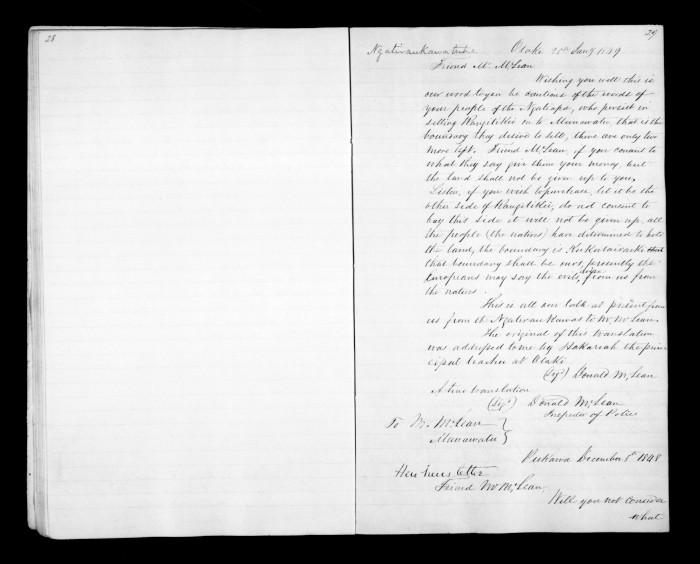 28
29
Ngatiraukawa tribe Otaki 20th Jany 1849
Friend Mr McLean
Wishing you well this is
our word to you be cautious of the words of
your people of the Ngatiapa, who persist in
selling Rangitikei on to Manawatu that is the
boundary they desire to sell, there are only two
more left. Friend McLean, if you consent to
what they say give them your money, but
the land shall not be given up to you.
Listen, if you wish to purchase, let it be the
other side of Rangitikei, do not consent to
buy this side it will not be given up, all
the people (the natives) have determined to hold
the land, the boundary is
that boundary shall be ours, presently the
Europeans may say the evils from us from
the natives.
This is all our talk at present from
us from the Ngatiraukawas to Mr. McLean.
The original of this translation
was addressed to me by Hakariah the prin
cipal teacher at Otaki
(Sigd) Donald McLean
A true translation
(Sigd) Donald McLean
Inspector of Police
To Mr. McLean
Manawatu
December 8th 1848
letter
Friend Mr McLean,
Will you not consider
what